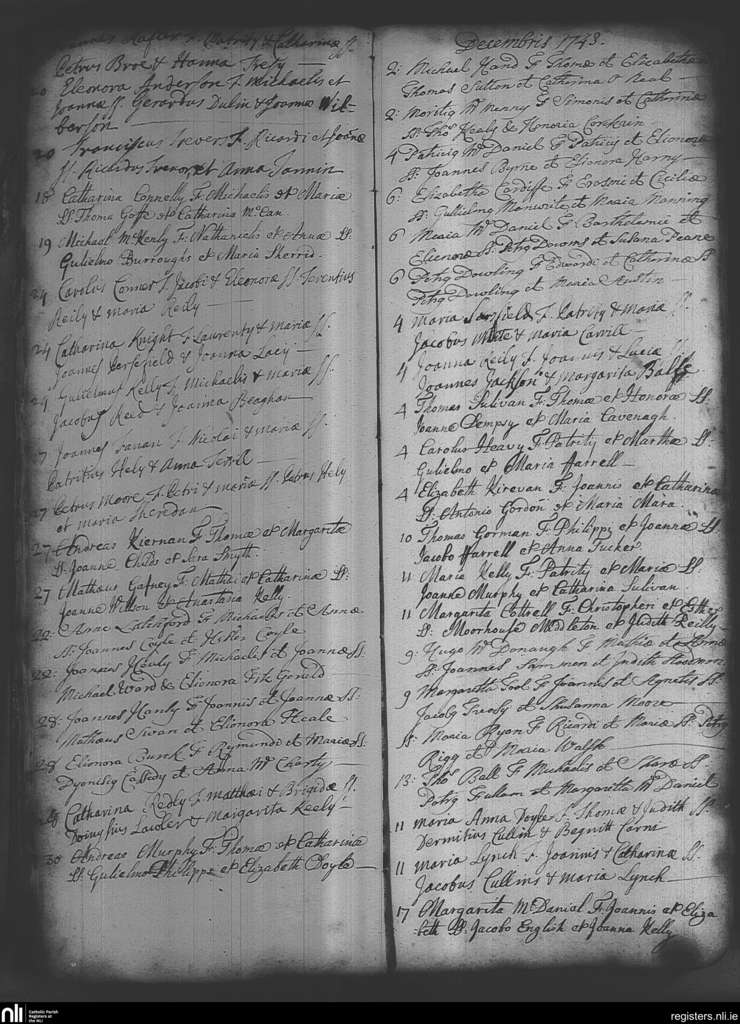 Petrus Broe & Hanna Trefy
20 Eleonora Anderson F. Michaelis et
Joannæ SS. Gerardus Dulin & Joanna Wil-
berson
20 Franciscus Trevers F. Ricardi et Joanæ
SS. Ricardus Trevor et Anna Tonnin
18 Catharina Connelly F. Michaelis et Mariæ
SS. Thoma Goffe et Catharina McCan
19 Michael McKenly F. Nathanielis et Annæ SS.
Gulielmo Burroughs et Maria Sherrid.
24 Carolus Conner F. Jacobi & Eleonoræ SS. Terentius
Reily & maria Reily
24 Catharina Knight F. Laurenty & mariæ SS.
Joannes & Joanna Lacy
24 Gulielmus Kelly F. Michaelis & mariæ SS.
Jacobus Reed & Joanna Beaghan
27 Joannes F. Nicolai & mariæ SS.
Patritius Hely & Anna
27 Petrus Moore F. Petri & mariæ SS. Petrus Hely
et maria Sheredan
27 Andreas Kiernan F. Thomæ et Margaritæ
SS. Joanne Childs et Sara Smytt.
27 Mathæus Gafney F. Mathei et Catharinæ SS.
Joanne Wilson et Anastatia Kelly.
22: Anne F. Michaelis et Annæ
SS. Joannes Coyle et Hester Coyle
22: Joannes Healy F. Michaelis et Joannæ SS.
Michael Ward & Elionora Fitz Gerald
28: Joannes Hanly F. Joannis et Joannæ SS:
Mathæus Swan et Elionora Heale
28 Elionora Bumk F. Rymundi et Mariæ SS.
Dyonisig Callidy et Anna McCharty
28 Catharina Redly F. Matthæi & Brigidæ SS.
Doinysius Lawler & Margarita Keely
30 Andreas Murphy F. Thomæ et Catharinæ
SS. Gulielmo Philippe et Elizabeth Doyle
Decembris 1743.
2: Michael Hand F. Thomæ et Elizabethæ
Thomas Sutton et Catherina O Neal
2: Moritig McNenny F. Simonis et Catherinæ
SS. Thos Healy & Honoria Corkrin
4 Patricig McDaniel F. Patricij et Elionoræ
SS. Joannes Byrne et Elionora Harny
6: Elizabetha Cardiff F. Erasmi et Ceciliæ
SS. Gulielmg Manwaite et Maria Manning
6 Maria McDaniel F. Bartholomæi et
Elienoræ SS. Petrg Downs et Susana Deane
6 Petrg Dowling F. Edwardi et Catherinæ SS.
Petrg Dowling et Maria Austin
4 Maria Sarsfield F. Patrity & mariæ SS.
Jacobus & maria Carvill
4 Joanna Reily F. Joannis & Luciæ SS.
Joannes Jackson & Margarita Balfe
4 Thomas Sulivan F. Thomæ et Honoræ SS.
Joanne Dempsy et Maria Cavenagh.
4 Carolus Heavy F. Patrity et Marthæ SS.
Gulielmo et Maria Farrell
4 Elizabeth Kirevan F. Joannis et Catharinæ
SS. Antonio Gordon et Maria Mara.
10 Thomas Gorman F. Philippi et Joannæ SS.
Jacobo Farrell et Anna Tucker
11 Maria Kelly F. Patrity et Mariæ SS.
Joanne Murphy et Catharina Sulivan
11 Margarita Cottrell F. Christopheri et
SS. Moorhouse Middleton et Judith Reilly
9: Hugo McDonaugh F. Mathiæ et Annæ
SS. Joannes Simmon et Judith
9 Margaretta Tool F. Joannis et Agnetis SS.
Jacobg et Shusanna Moore
11: Maria Ryon F. Ricardi et Mariæ SS. Petrg
Rigg et Maria Walsh
13: Thos Ball F. Michaelis et Saræ SS.
Petrg Fullam et Margaretta McDaniel
11 maria Anna Doyle F. Thomæ & Judith SS.
Dermitius Cullin & Begnitt Carni
11 maria Lynch F. Joannis & Catharinæ SS.
Jacobus Cullins & maria Lynch
17 Margarita McDanial F. Joannis et Eliza
beth SS. Jacobo English et Joanna Kelly
nli
Catholic Parish
Registers at
the NLI
registers.nli.ie